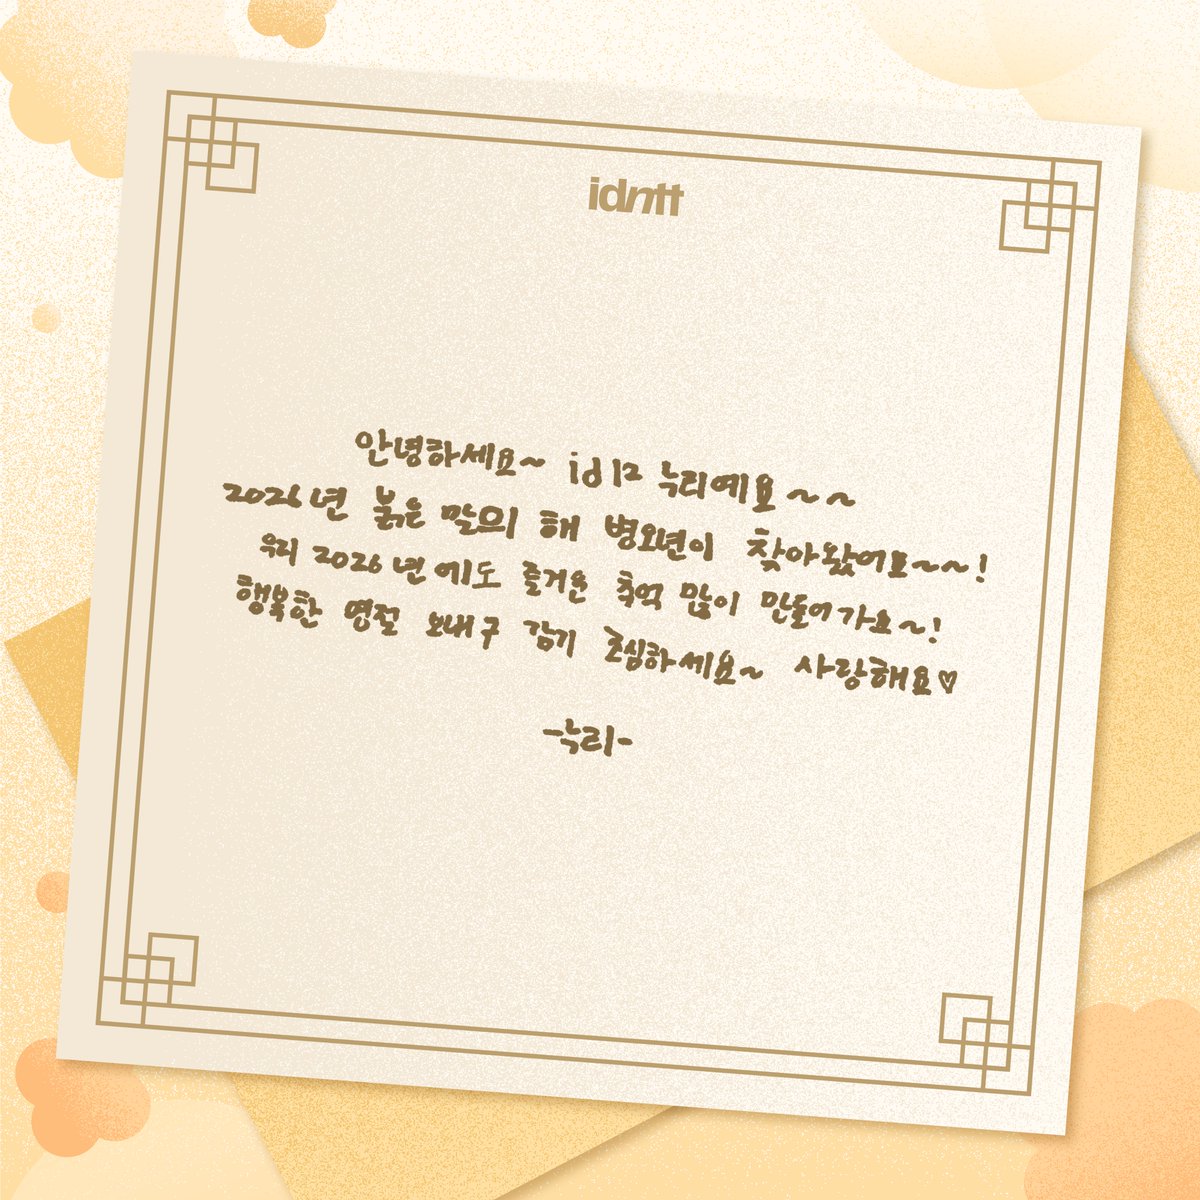 idntt
안녕하세요~ id12 눅리예요~~
2026년 붉은 말의 해 병오년이 찾아왔어요~~~!
우리 2026년에도 즐거운 추억 많이 만들어가요~!
행복한 명절 보내구 감기 조심하세요~ 사랑해요♡
-눅리-